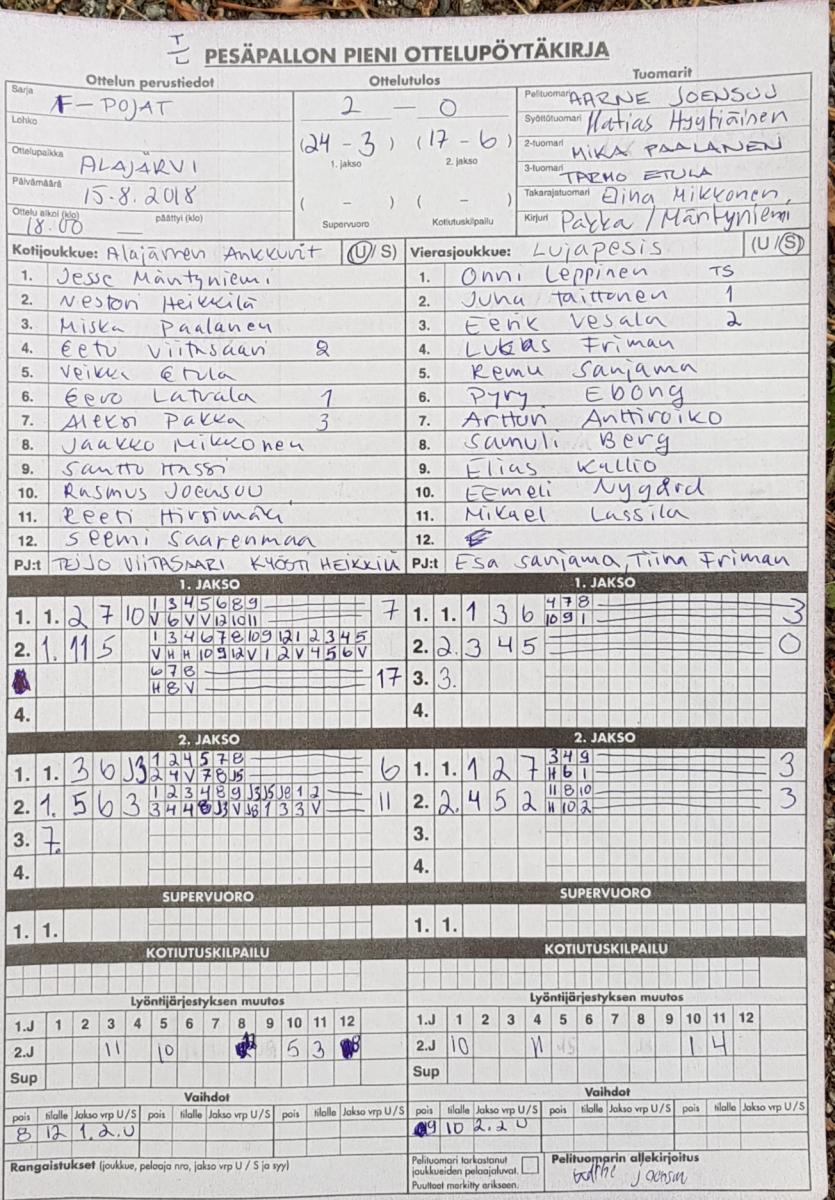 T/L PESÄPALLON PIENI OTTELUPÖYTÄKIRJA
Ottelun perustiedot
Sarja F-POJAT
Lohko
Ottelupaikka ALAJÄRVI
Päivämäärä 15.8.2018
Ottelu alkoi (klo) 18.00 päättyi (klo)
Ottelutulos
2 - 0
(24 - 3) (17 - 6)
1. jakso 2. jakso
( - ) ( - )
Supervuoro Kotiutuskilpailu
Tuomarit
Pelituomari AARNE JOENSUU
Syöttötuomari Matias Hyytiäinen
2-tuomari MIKA PAALANEN
3-tuomari TARMO ETULA
Takarajatuomari Elina Mikkonen,
Kirjuri Pakka / Mäntyniemi
Kotijoukkue: Alajärven Ankkurit (U/S)
1. Jesse Mäntyniemi
2. Nestori Heikkilä
3. Miska Paalanen
4. Eetu Viitasaari 2
5. Veikka Etula
6. Eero Latvala 1
7. Aleksi Pakka 3
8. Jaakko Mikkonen
9. Santtu Hassi
10. Rasmus Joensuu
11. Eeti Hirsimäki
12. Seemi Saarenmaa
PJ:t TEIJO VIITASAARI KYÖSTI HEIKKILÄ
Vierasjoukkue: Lujapesis (U/S)
1. Onni Leppinen TS
2. Juha Taittonen 1
3. Eerik Vesala 2
4. Lukas Friman
5. Remu Sanjama
6. Pyry Ebong
7. Artturi Anttiroiko
8. Samuli Berg
9. Elias Kallio
10. EEmeli Nygård
11. Mikael Lassila
12.
PJ:t Esa Sanjama, Tiina Friman
1. JAKSO
1. 1. 2 7 10 1 3 4 5 6 8 9 7
V 6 V V 12 10 11
2. 1. 11 5 1 3 4 6 7 8 10 9 12 1 2 3 4 5
V H H 10 9 12 V 1 2 V 4 5 6 V
6 7 8 17
H 8 V
4.
1. JAKSO
1. 1. 1 3 6 4 7 8 3
10 9 1
2. 2. 3 4 5 0
3. 3.
4.
2. JAKSO
1. 1. 3 6 J3 1 2 4 5 7 8 6
2 4 V 7 8 J5
2. 1. 5 6 3 1 2 3 4 8 9 J3 J5 J8 1 2 11
3 4 4 8 J3 V J8 1 3 3 V
3. 7.
4.
2. JAKSO
1. 1. 1 2 7 3 4 9 3
H 6 1
2. 2. 4 5 2 11 8 10 3
H 10 2
3.
4.
SUPERVUORO
1. 1.
SUPERVUORO
1. 1.
KOTIUTUSKILPAILU
KOTIUTUSKILPAILU
Lyöntijärjestyksen muutos
1.J 1 2 3 4 5 6 7 8 9 10 11 12
2.J 11 10 5 3
Sup
Lyöntijärjestyksen muutos
1.J 1 2 3 4 5 6 7 8 9 10 11 12
2.J 10 11 1 4
Sup
Vaihdot
pois tilalle Jakso vrp U/S pois tilalle Jakso vrp U/S pois tilalle Jakso vrp U/S
8 12 1. 2. U
Vaihdot
pois tilalle Jakso vrp U/S pois tilalle Jakso vrp U/S pois tilalle Jakso vrp U/S
9 10 2. 2 U
Rangaistukset (joukkue, pelaaja nro, jakso vrp U / S ja syy)
Pelituomari tarkastanut
joukkueiden pelaajaluvat.
Puutteet merkitty erikseen.
Pelituomarin allekirjoitus
Aarne Joensuu